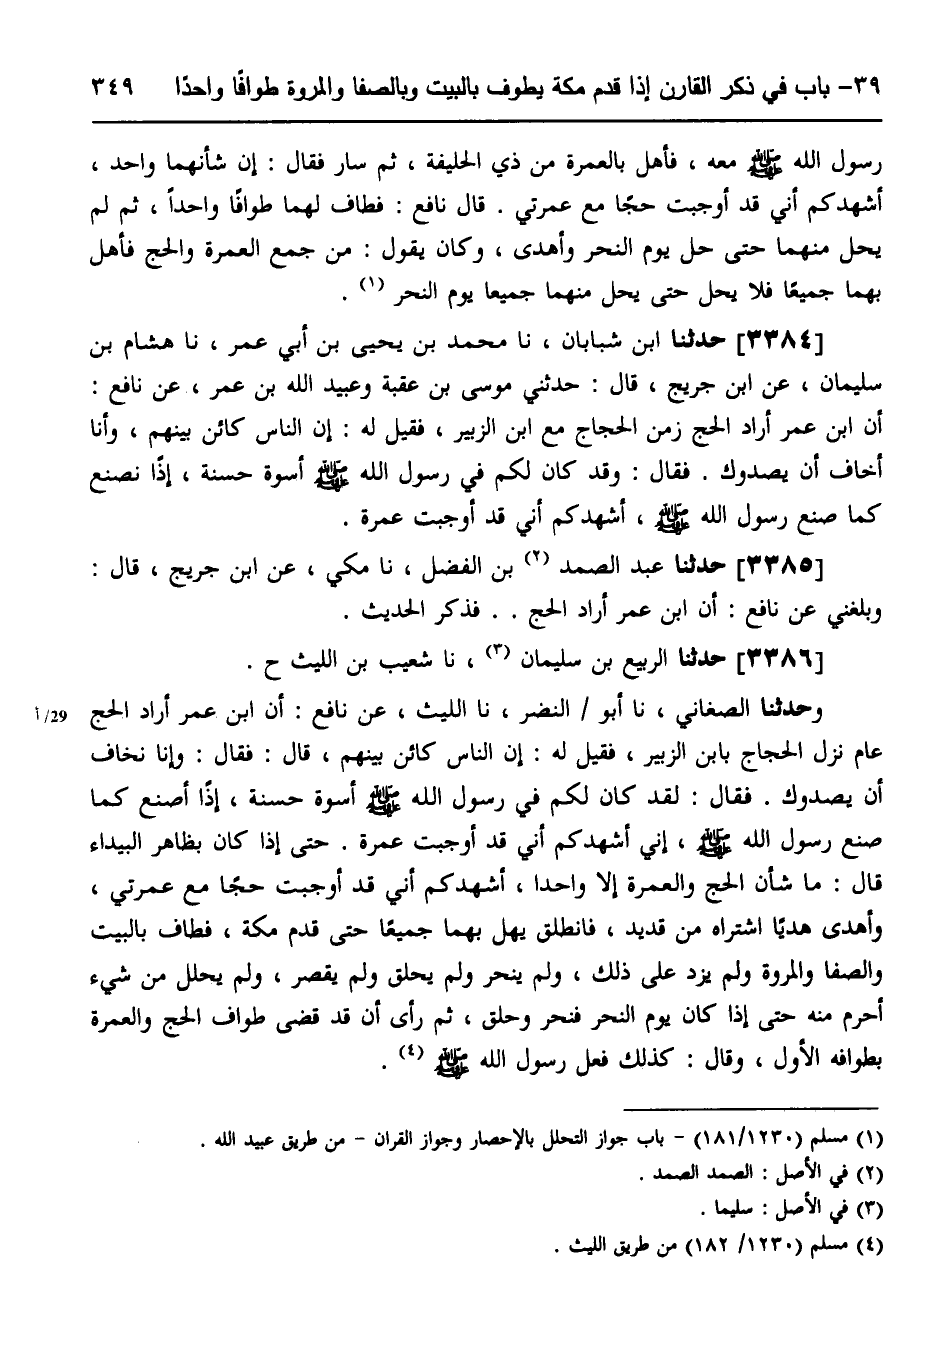 ٣٩- باب في ذكر القارن إذا قدم مكة يطوف بالبيت وبالصفا والمروة طوافًا واحدًا ٣٤٩
رسول الله ﷺ معه ، فأهل بالعمرة من ذي الحليفة ، ثم سار فقال : إن شأنهما واحد ،
أشهدكم أني قد أوجبت حجًا مع عمرتي . قال نافع : فطاف لهما طوافًا واحداً ، ثم لم
يحل منهما حتى حل يوم النحر وأهدى ، وكان يقول : من جمع العمرة والحج فأهل
بهما جميعًا فلا يحل حتى يحل منهما جميعا يوم النحر (١) .
[٣٣٨٤] حدثنا ابن شبابان ، نا محمد بن يحيى بن أبي عمر ، نا هشام بن
سليمان ، عن ابن جريج ، قال : حدثني موسى بن عقبة وعبيد الله بن عمر ، عن نافع :
أن ابن عمر أراد الحج زمن الحجاج مع ابن الزبير ، فقيل له : إن الناس كائن بينهم ، وأنا
أخاف أن يصدوك . فقال : وقد كان لكم في رسول الله ﷺ أسوة حسنة ، إذًا نصنع
كما صنع رسول الله ﷺ ، أشهدكم أني قد أوجبت عمرة .
[٣٣٨٥] حدثنا عبد الصمد (٢) بن الفضل ، نا مكي ، عن ابن جريج ، قال :
وبلغني عن نافع : أن ابن عمر أراد الحج . . فذكر الحديث .
[٣٣٨٦] حدثنا الربيع بن سليمان (٣) ، نا شعيب بن الليث ح .
وحدثنا الصغاني ، نا أبو / النضر ، نا الليث ، عن نافع : أن ابن عمر أراد الحج 29/أ
عام نزل الحجاج بابن الزبير ، فقيل له : إن الناس كائن بينهم ، قال : فقال : وإنا نخاف
أن يصدوك . فقال : لقد كان لكم في رسول الله ﷺ أسوة حسنة ، إذًا أصنع كما
صنع رسول الله ﷺ ، إني أشهدكم أني قد أوجبت عمرة . حتى إذا كان بظاهر البيداء
قال : ما شأن الحج والعمرة إلا واحدا ، أشهدكم أني قد أوجبت حجًا مع عمرتي ،
وأهدى هديًا اشتراه من قديد ، فانطلق يهل بهما جميعًا حتى قدم مكة ، فطاف بالبيت
والصفا والمروة ولم يزد على ذلك ، ولم ينحر ولم يحلق ولم يقصر ، ولم يحلل من شيء
أحرم منه حتى إذا كان يوم النحر فنحر وحلق ، ثم رأى أن قد قضى طواف الحج والعمرة
بطوافه الأول ، وقال : كذلك فعل رسول الله ﷺ (٤) .
(١) مسلم (١٨١/١٢٣٠) - باب جواز التحلل بالإحصار وجواز القران - من طريق عبيد الله .
(٢) في الأصل : الصمد الصمد .
(٣) في الأصل : سليما .
(٤) مسلم (١٢٣٠/ ١٨٢) من طريق الليث .